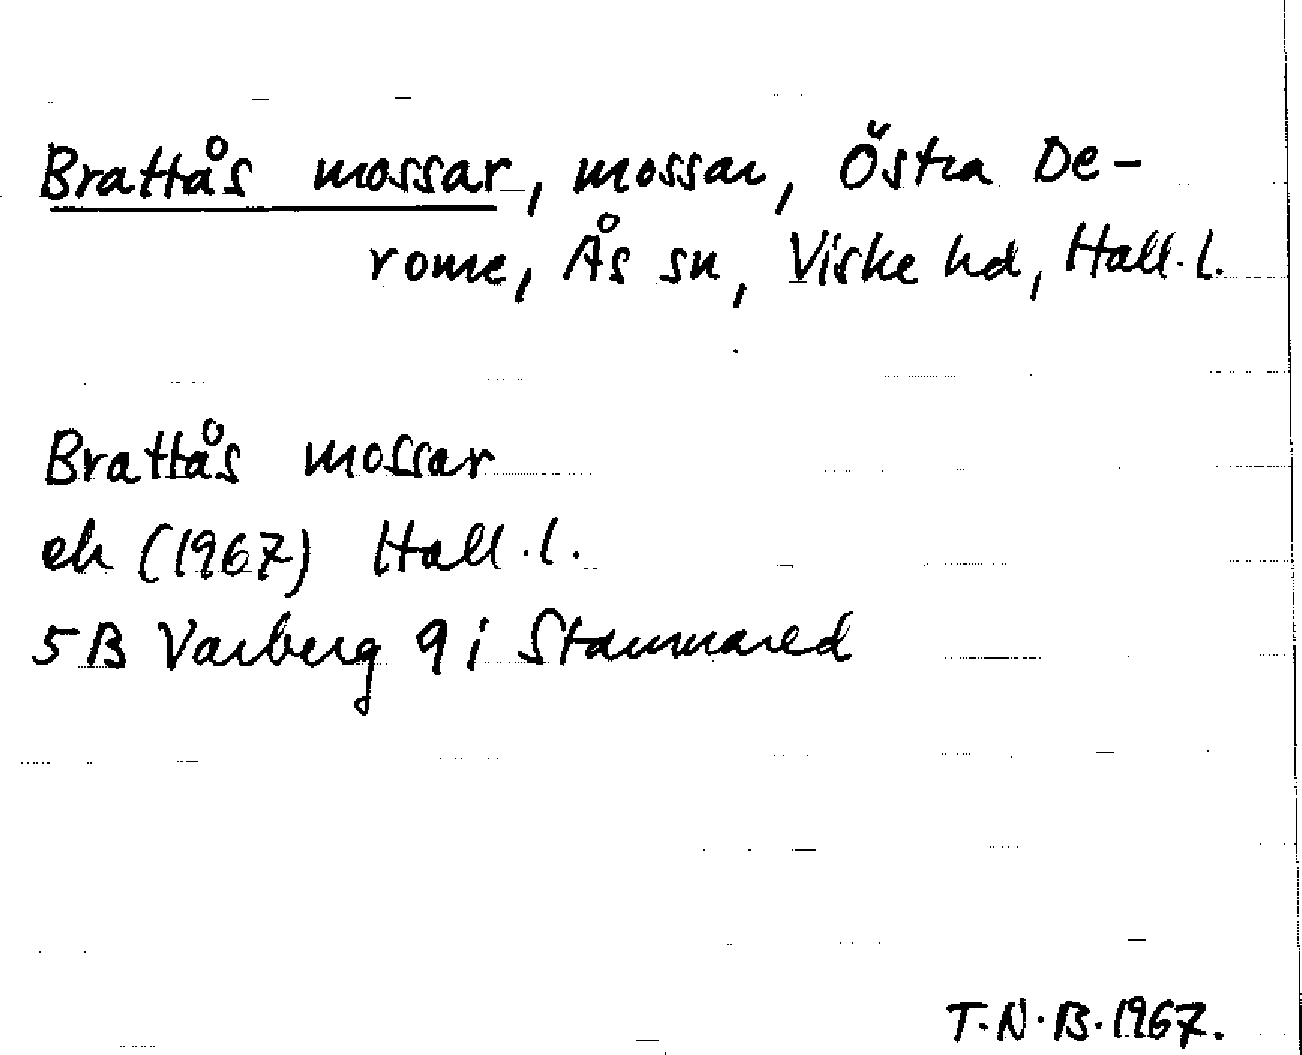 Brattås mossar, mossar, Östra De-
rome, Ås sn, Viske hd, Hall.l.
Brattås mossar
ek (1967) Hall.l.
5B Varberg 9i Stammared
T.N.B.1967.